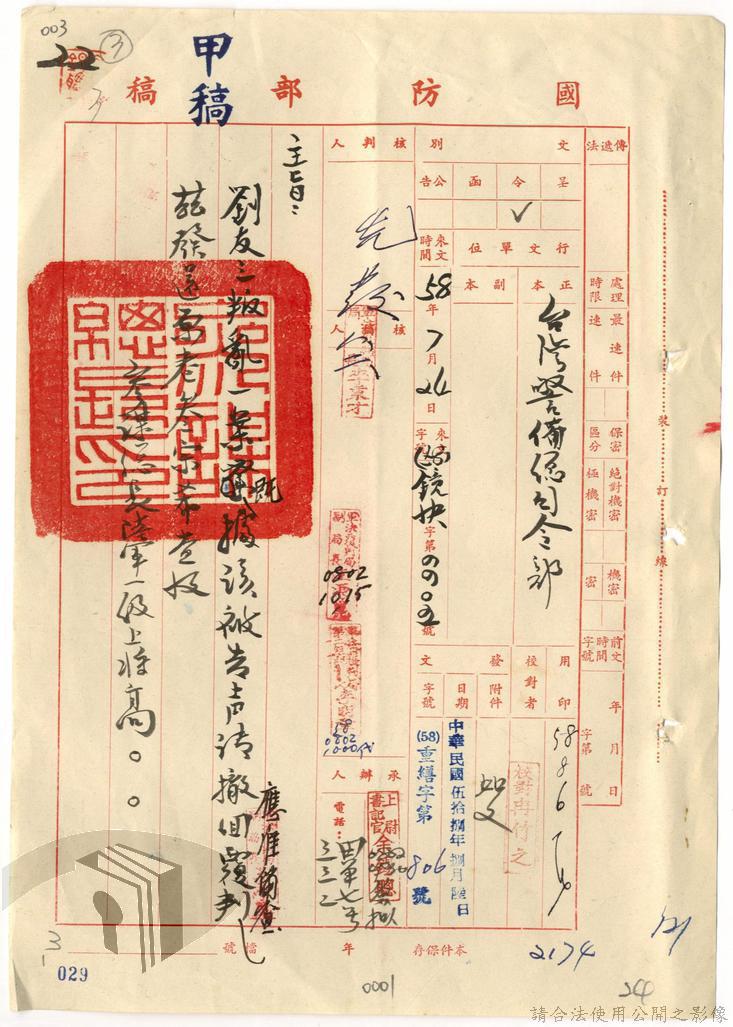 003
22
③
甲稿
國防部稿
傳遞法
處理時限
最速件
速件
保密區分
絕對機密
極機密
機密
密
前文時間字號
年 月 日
字第 號
文別
呈
令 ✓
函
公告
行文單位
正本
副本
台灣警備總司令部
來文時間
58年7月24日
來文字號
(58)鏡抉字第 號
用印
58 8 6
校對者
校對毋竹之
附件
如文
發文
日期
中華民國伍拾捌年捌月陸日
字號
(58)重繕字第806號
核判人
核稿人
0802
1015
58
0802
1000
承辦人
上尉書記官
電話:
三三二
主旨:
劉友三叛亂一案既據該被告声請撤回覆判
應准備查
茲發還原卷
希查收
參謀總長陸軍一級上將高○○
裝訂線
本件保存 年
檔號
2174
121
244
3
1
029
0001
請合法使用公開之影像